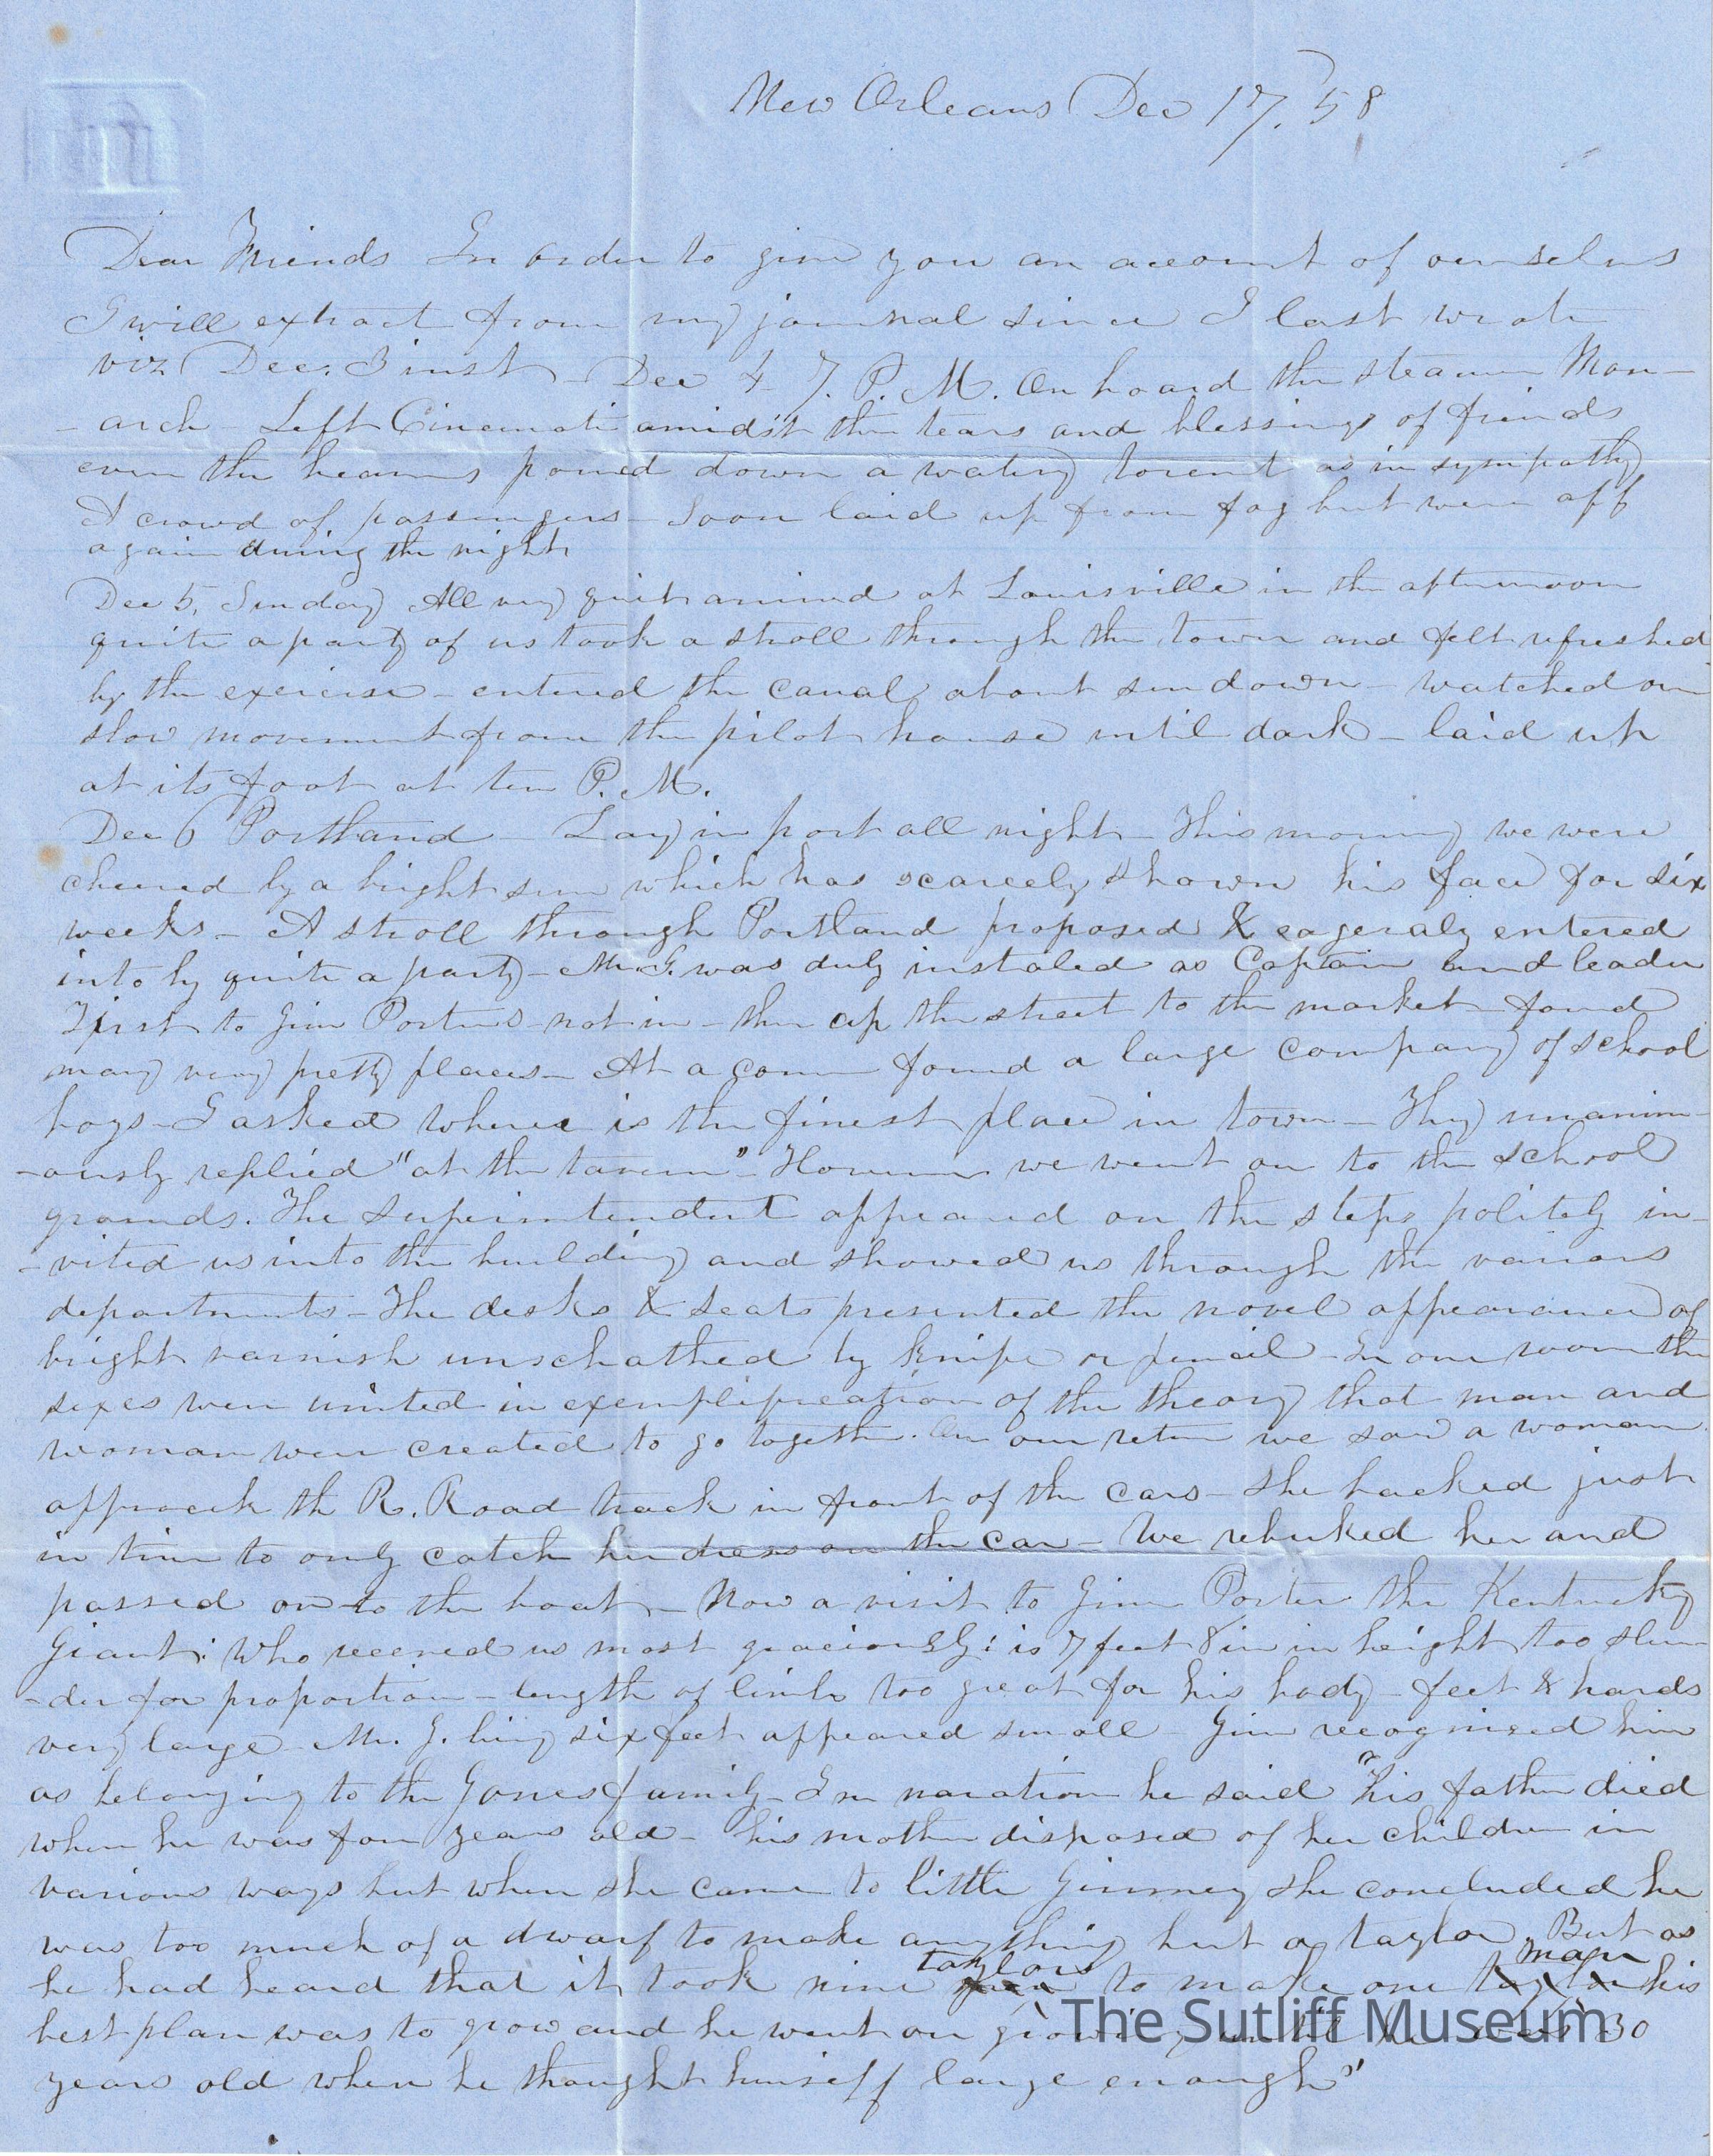 New Orleans Dec 17. 58
Dear Friends In order to give you an account of ourselves
I will extract from my journal since I last wrote
viz Dec. 3 inst – Dec 4 7. P. M. On board the steamer Mon-
-arch – Left Cincinnati amidst the tears and blessings of friends
even the heavens poured down a watery torent as in sympathy
A crowd of passengers – Soon laid up from fog but were off
again during the night
Dec 5, Sunday All very quiet arrived at Louisville in the afternoon
quite a party of us took a stroll through the town and felt refreshed
by the exercise – entered the canal about sundown – watched our
slow movement from the pilot house until dark – laid up
at its foot at ten P. M.
Dec 6 Portland – Lay in port all night – This morning we were
cheered by a bright sun which has scarcely shown his face for six
weeks – A stroll through Portland proposed & eageraly entered
into by quite a party – Mr. J. was duly instaled as Captain and leader
First to Jim Porters not in – then up the street to the market – found
many very pretty places – At a corner found a large company of school
boys – I asked where is the finest place in town – They unanim-
-ously replied "at the tavern" – However we went on to the school
grounds. The Superintendent appeared on the steps politely in-
-vited us into the building and showed us through the various
departments – The desks & seats presented the novel appearance of
bright varnish unschathed by knife or pencil – In one room the
sexes were united in exemplification of the theory that man and
woman were created to go together. On our return we saw a woman
approach the R. Road track in front of the cars – She backed just
in time to only catch her dress on the car – We rebuked her and
passed on to the boat – Now a visit to Jim Porter the Kentucky
Giant: Who received us most graciously: is 7 feet 8 in in height too slen-
-der for proportion – length of limb too great for his body – feet & hands
very large – Mr. J. being six feet appeared small – Jim recognised him
as belonging to the Jones family – In naration he said "his father died
when he was four years old – his mother disposed of her children in
various ways but when she came to little Jimmey she concluded he
was too much of a dwarf to make anything but a taylor. But as
he had heard that it took nine taylors to make one man his
best plan was to grow and he went on growing until he was 30
years old when he thought himself large enough"
The Sutliff Museum